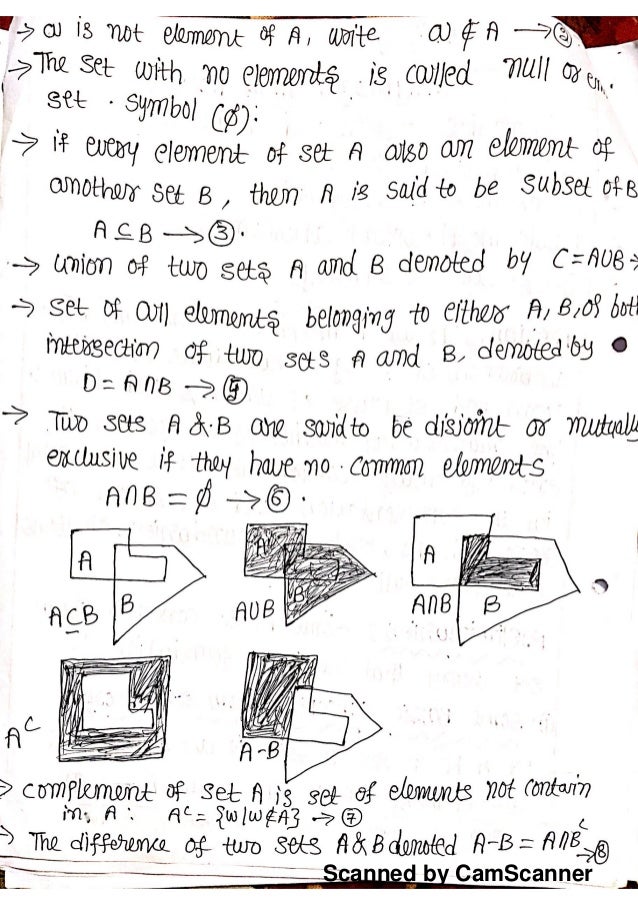 → ω is not element of A, write ω ∉ A →②
→ The set with no elements is called null or em.
set. symbol (∅):
→ if every element of set A also an element of
another set B, then A is said to be subset of B
A ⊆ B →③.
→ union of two sets A and B denoted by C = A∪B →
→ set of all elements belonging to either A, B, or both
intersection of two sets A and B, denoted by
D = A∩B →⑤
→ Two sets A & B are said to be disjoint or mutually
exclusive if they have no common elements
A∩B = ∅ →⑥.
A
B
A⊆B
A
B
A∪B
A
B
A∩B
Aᶜ
A-B
→ complement of set A is set of elements not contain
in, A: Aᶜ = {ω|ω∉A} →⑦
→ The difference of two sets A & B denoted A-B = A∩Bᶜ →⑧
Scanned by CamScanner